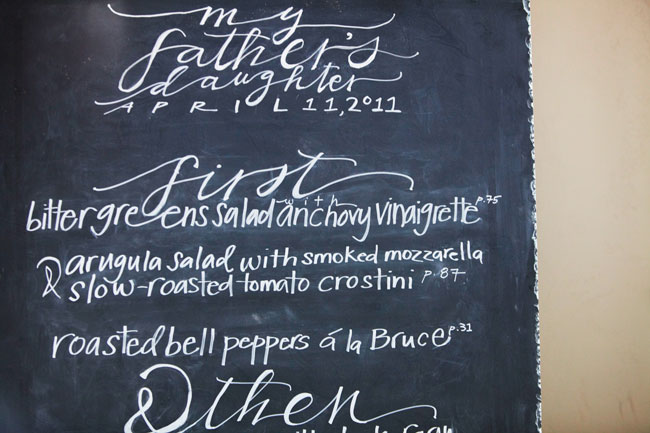 my
father's
daughter
APRIL 11, 2011
first
bitter greens salad with anchovy vinaigrette p.75
arugula salad with smoked mozzarella
& slow-roasted tomato crostini p.87
roasted bell peppers á la Bruce p.31
& then